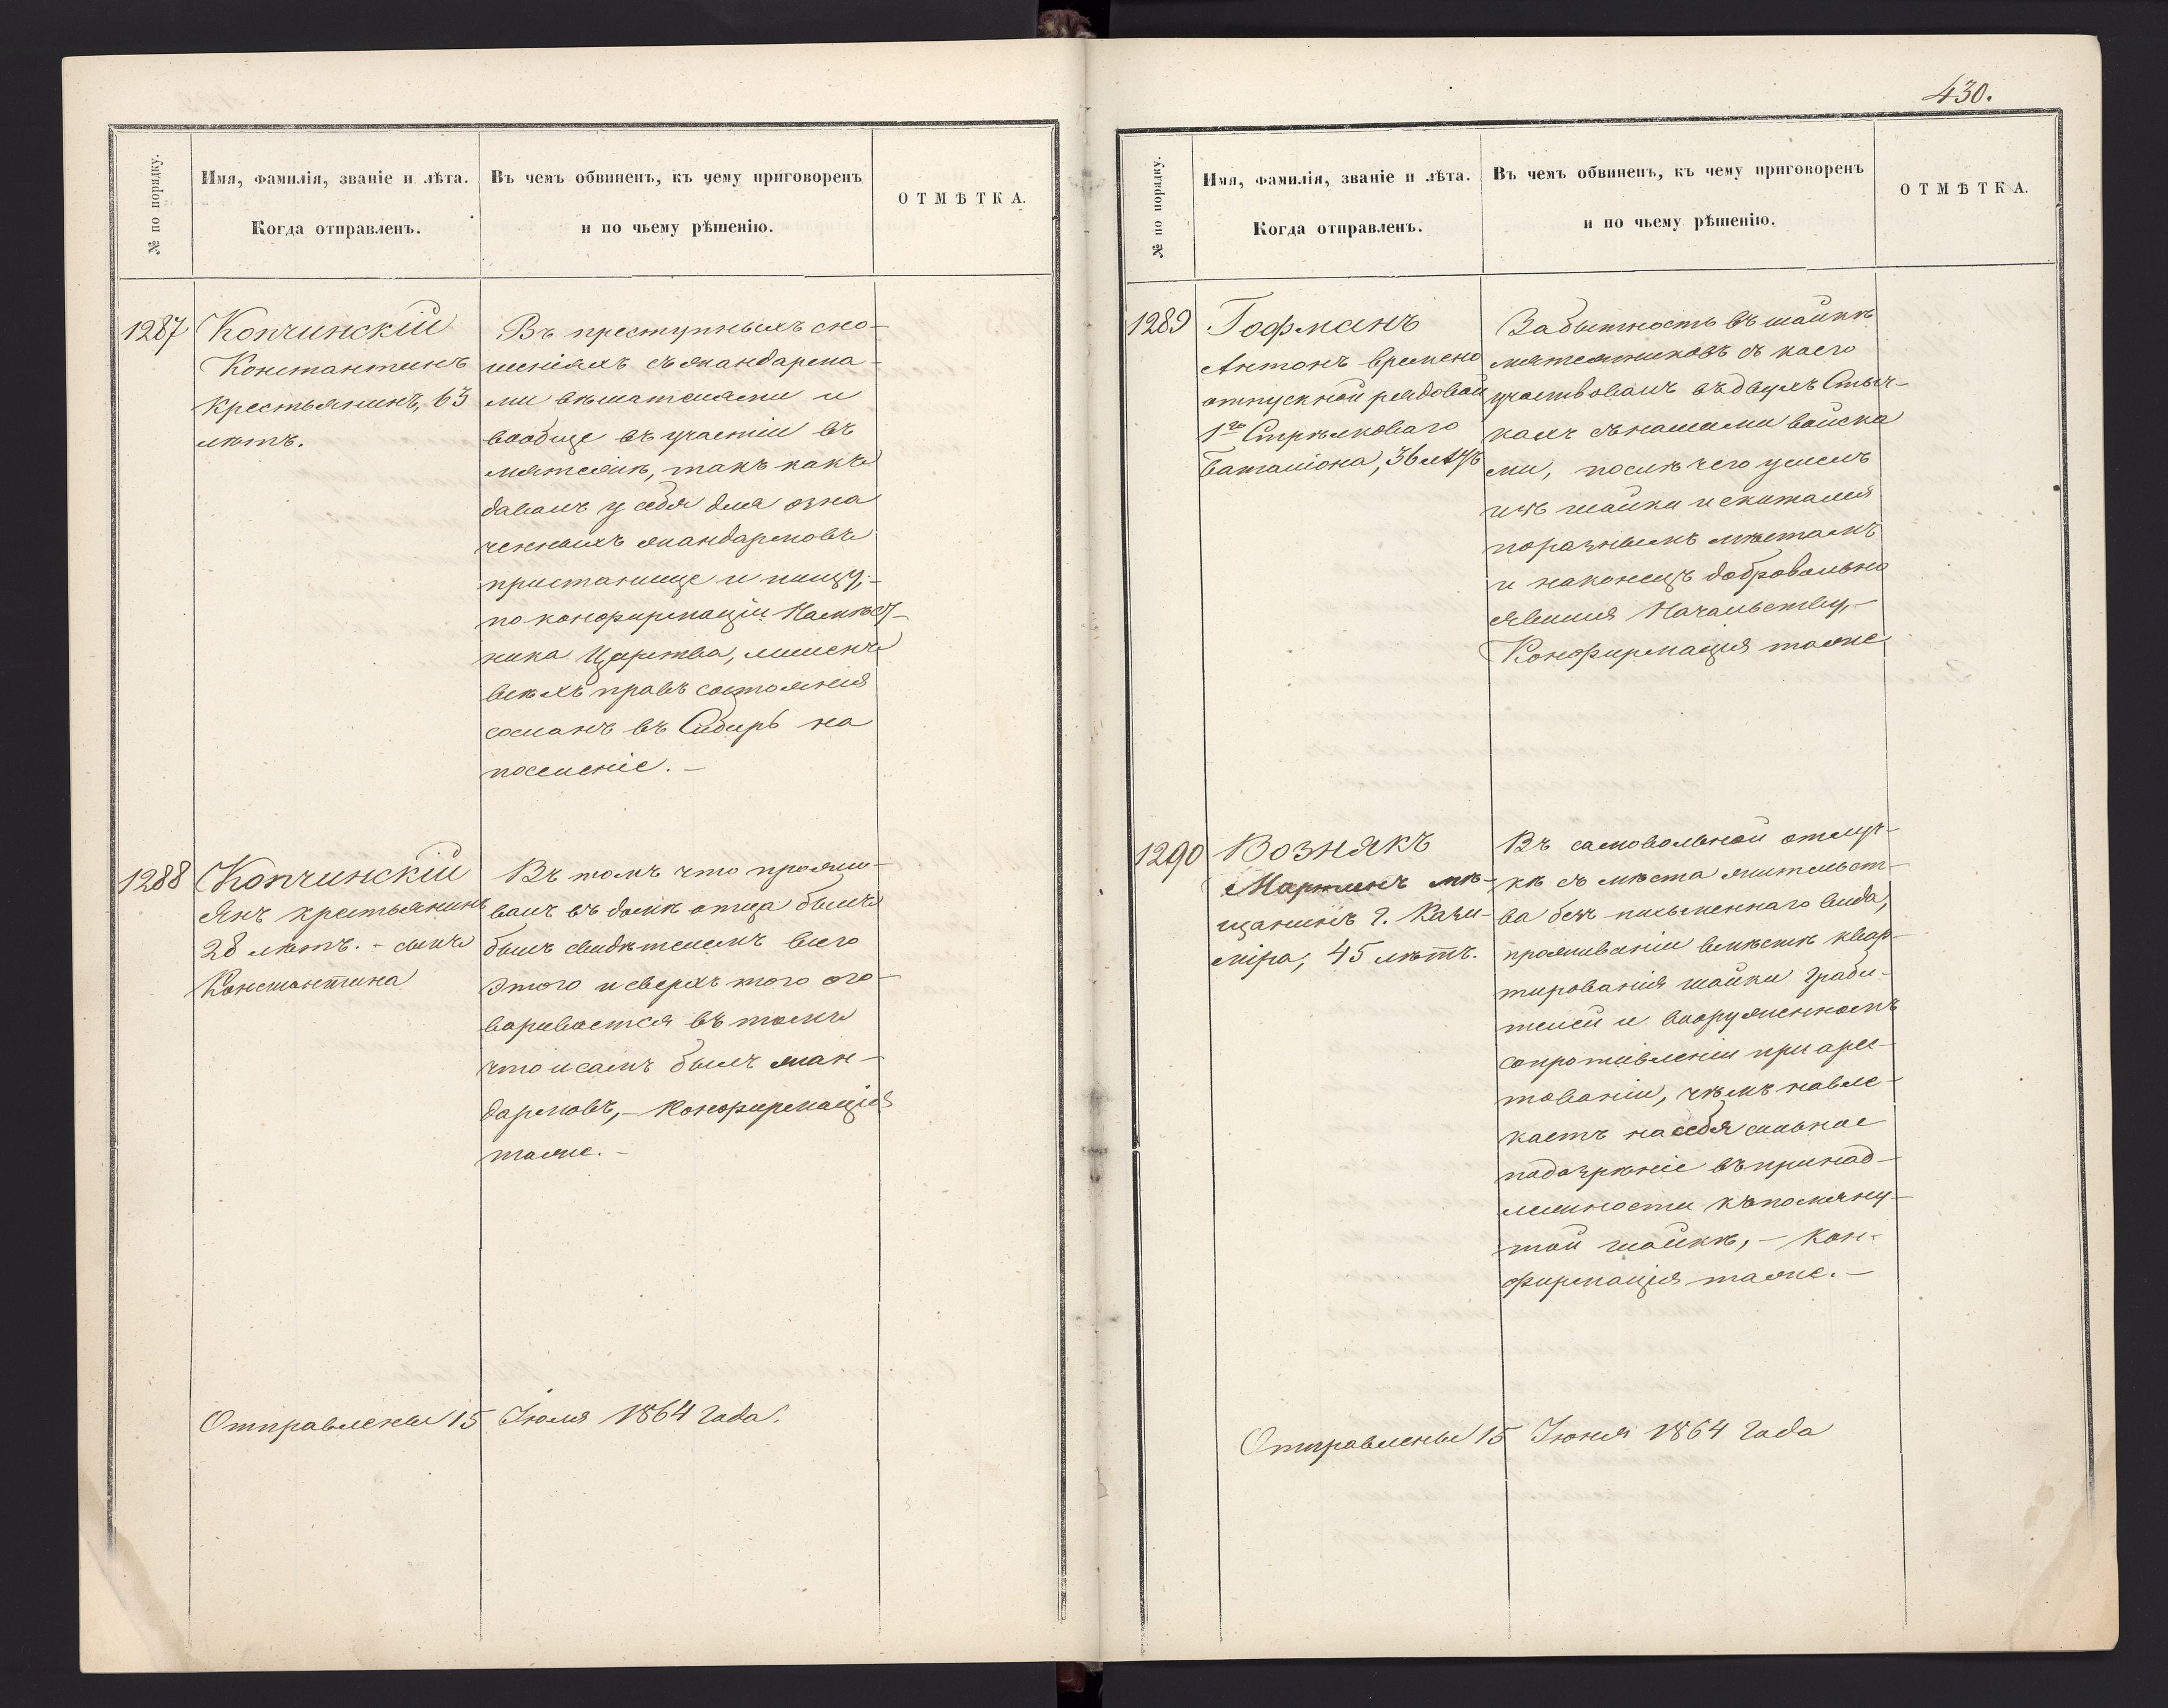 430.
№ по порядку.
Имя, фамилія, званіе и лѣта.
Когда отправленъ.
Въ чемъ обвиненъ, къ чему приговоренъ
и по чьему рѣшенію.
ОТМѢТКА.
1287
Копчинскій
Константинъ
крестьянинъ, 63
лѣтъ.
Въ преступныхъ сно-
шеніяхъ съ жандарма-
ми вѣшателями и
вообще въ участіи въ
мятежѣ, такъ какъ
давалъ у себя для озна
ченныхъ жандармовъ
пристанище и пищу,-
по конфирмаціи Намѣст-
ника Царства, лишенъ
всѣхъ правъ состоянія
сосланъ въ Сибирь на
поселеніе. -
1288
Копчинскій
Янъ крестьянинъ
28 лѣтъ. - сынъ
Константина
Въ томъ что прожи-
валъ въ домѣ отца былъ
былъ свидѣтелемъ всего
этого и сверхъ того ого-
варивается въ томъ
что и самъ былъ жан-
дармовъ,- Конфирмація
таже. -
Отправлены 15 Іюля 1864 года.
№ по порядку.
Имя, фамилія, званіе и лѣта.
Когда отправленъ.
Въ чемъ обвиненъ, къ чему приговоренъ
и по чьему рѣшенію.
ОТМѢТКА.
1289
Гофманъ
Антонъ времено
отпускной рядовой
1го Стрѣлковаго
баталіона, 36 лѣтъ
За бытность въ шайкѣ
мятежниковъ съ коего
участвовалъ въ двухъ Стыч-
кахъ съ нашими войска
ми, послѣ чего ушелъ
изъ шайки и скитался
по разнымъ мѣстамъ
и наконецъ добровольно
явился Начальству,-
Конфирмація таже
1290
Вознякъ
Мартинъ мѣ-
щанинъ г. Кази-
міра, 45 лѣтъ.
Въ самовольной отлуч-
кѣ съ мѣста жительст-
ва безъ письменнаго вида,
проживаніи вмѣстѣ квар-
тированія шайки граби-
телей и вооруженномъ
сопротивленіи при арес-
тованіи, чѣмъ навле-
каетъ на себя сильное
подозрѣніе въ принад-
лежности къ помяну-
той шайкѣ, - Кон-
фирмація таже. -
Отправлены 15 Іюня 1864 года